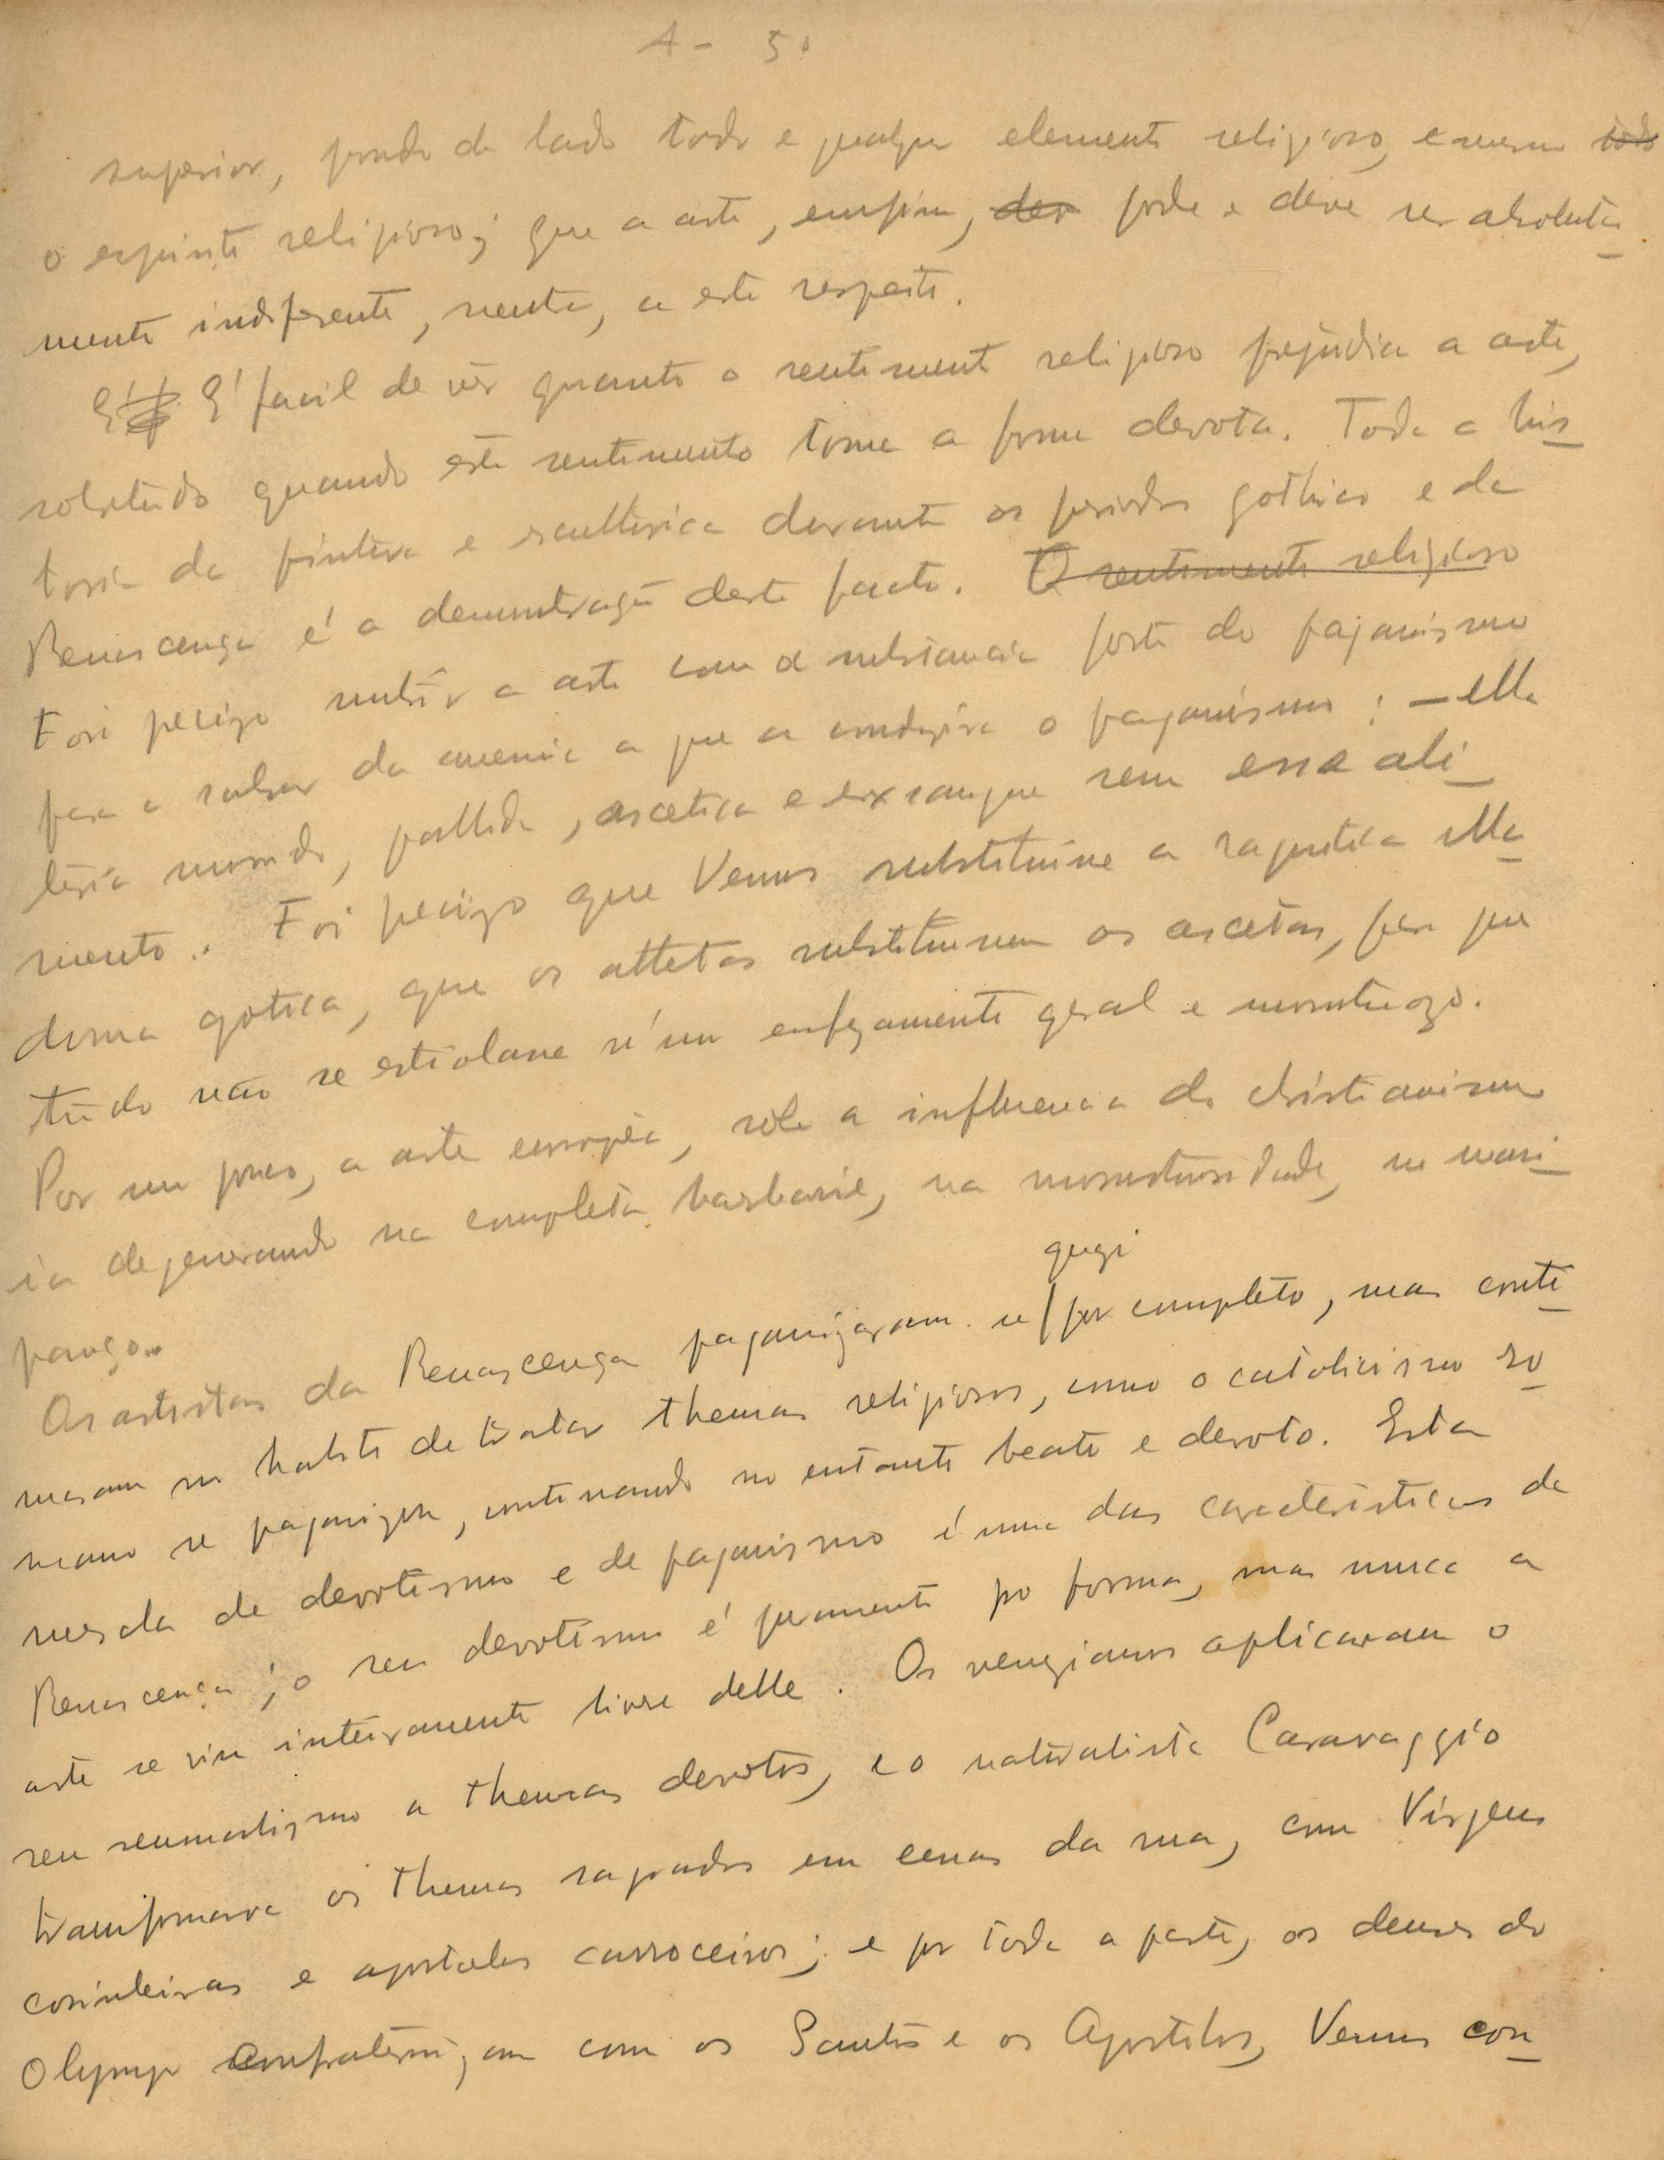 A - 5
superior, pondo de lado todo e qualquer elemento religioso, e mesmo todo
o espirito religioso; que a arte, emfim, dev pode e deve ser absoluta-
mente indifferente, neutra, a este respeito.
E' E' facil de vêr quanto o sentimento religioso prejudica a arte,
sobretudo quando este sentimento toma a forma devota. Toda a his-
toria da pintura e esculturica durante os periodos gothico e da
Renascença é a demonstração deste facto. O sentimento religioso
Foi preciso nutrir a arte com a substancia forte do paganismo
para a salvar da anemia a que a conduzira o paganismo: - ella
teria morrido, pallida, ascetica e exsangue sem esse ali-
mento. Foi preciso que Venus substituisse a raquitica Ma-
dona gotica, que os atletas substituissem os ascetas, para que
tudo não se estiolasse n'um enfezamento geral e monstruozo.
Por um pouco, a arte européa, sob a influencia do christianismo
ia degenerando na completa barbarie, na monstruosidade, no mani-
panço.
Os artistas da Renascença paganizaram-se / por completo, mas conti-
quazi
nuaram no habito de tratar themas religiosos, como o catolicismo ro-
mano se paganizou, continuando no entanto beato e devoto. Esta
mescla de devotismo e de paganismo é uma das caracteristicas da
Renascença; o seu devotismo é puramente pro forma, mas nunca a
arte se viu inteiramente livre delle. Os venezianos aplicaram o
seu sensualismo a themas devotos, e o naturalista Caravaggio
transformava os themas sagrados em cenas da rua, com Virgens
cosinheiras e apostolos carroceiros; e por toda a parte, os deuses do
Olympo confraternizam com os Santos e os Apostolos, Venus con-